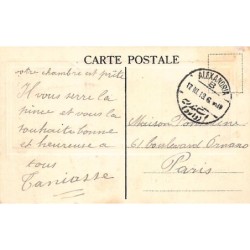 CARTE POSTALE
votre chambre est prête
Il vous serre la
pince et vous la
souhaite bonne
et heureuse à
tous
Taniasse
ALEXANDRIA
17 III 13
Maison
61 boulevard Ornano
Paris